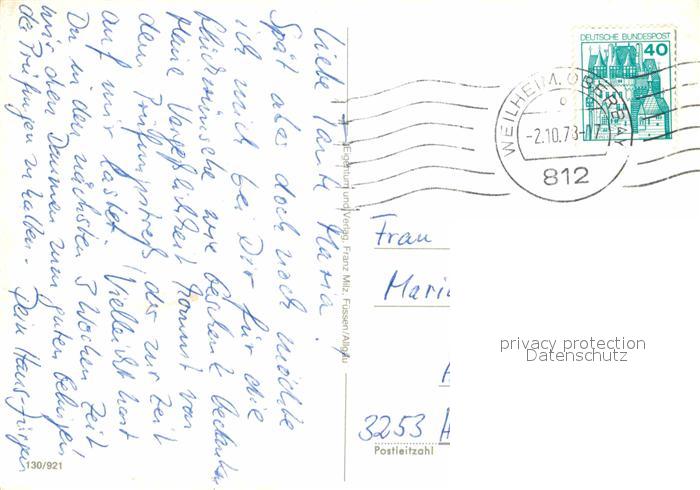 Liebe Tante Maria!
Spät aber doch noch möchte
ich mich bei Dir für die
wie bedanken.
Meine Vergeßlichkeit kommt von
dem Prüfungsstreß der zur Zeit
auf mir lastet. Vielleicht hast
Du in den nächsten 3 Wochen Zeit
mir den Daumen zum guten Gelingen
der Prüfungen zu halten. Dein Hans-Jürgen
130/921
Eigentum und Verlag, Franz Milz, Füssen/Allgäu
DEUTSCHE BUNDESPOST
40
WEILHEIM, OBERBAY
-2.10.78-17
812
Frau
Mari
3253 H
Postleitzahl
privacy protection
Datenschutz